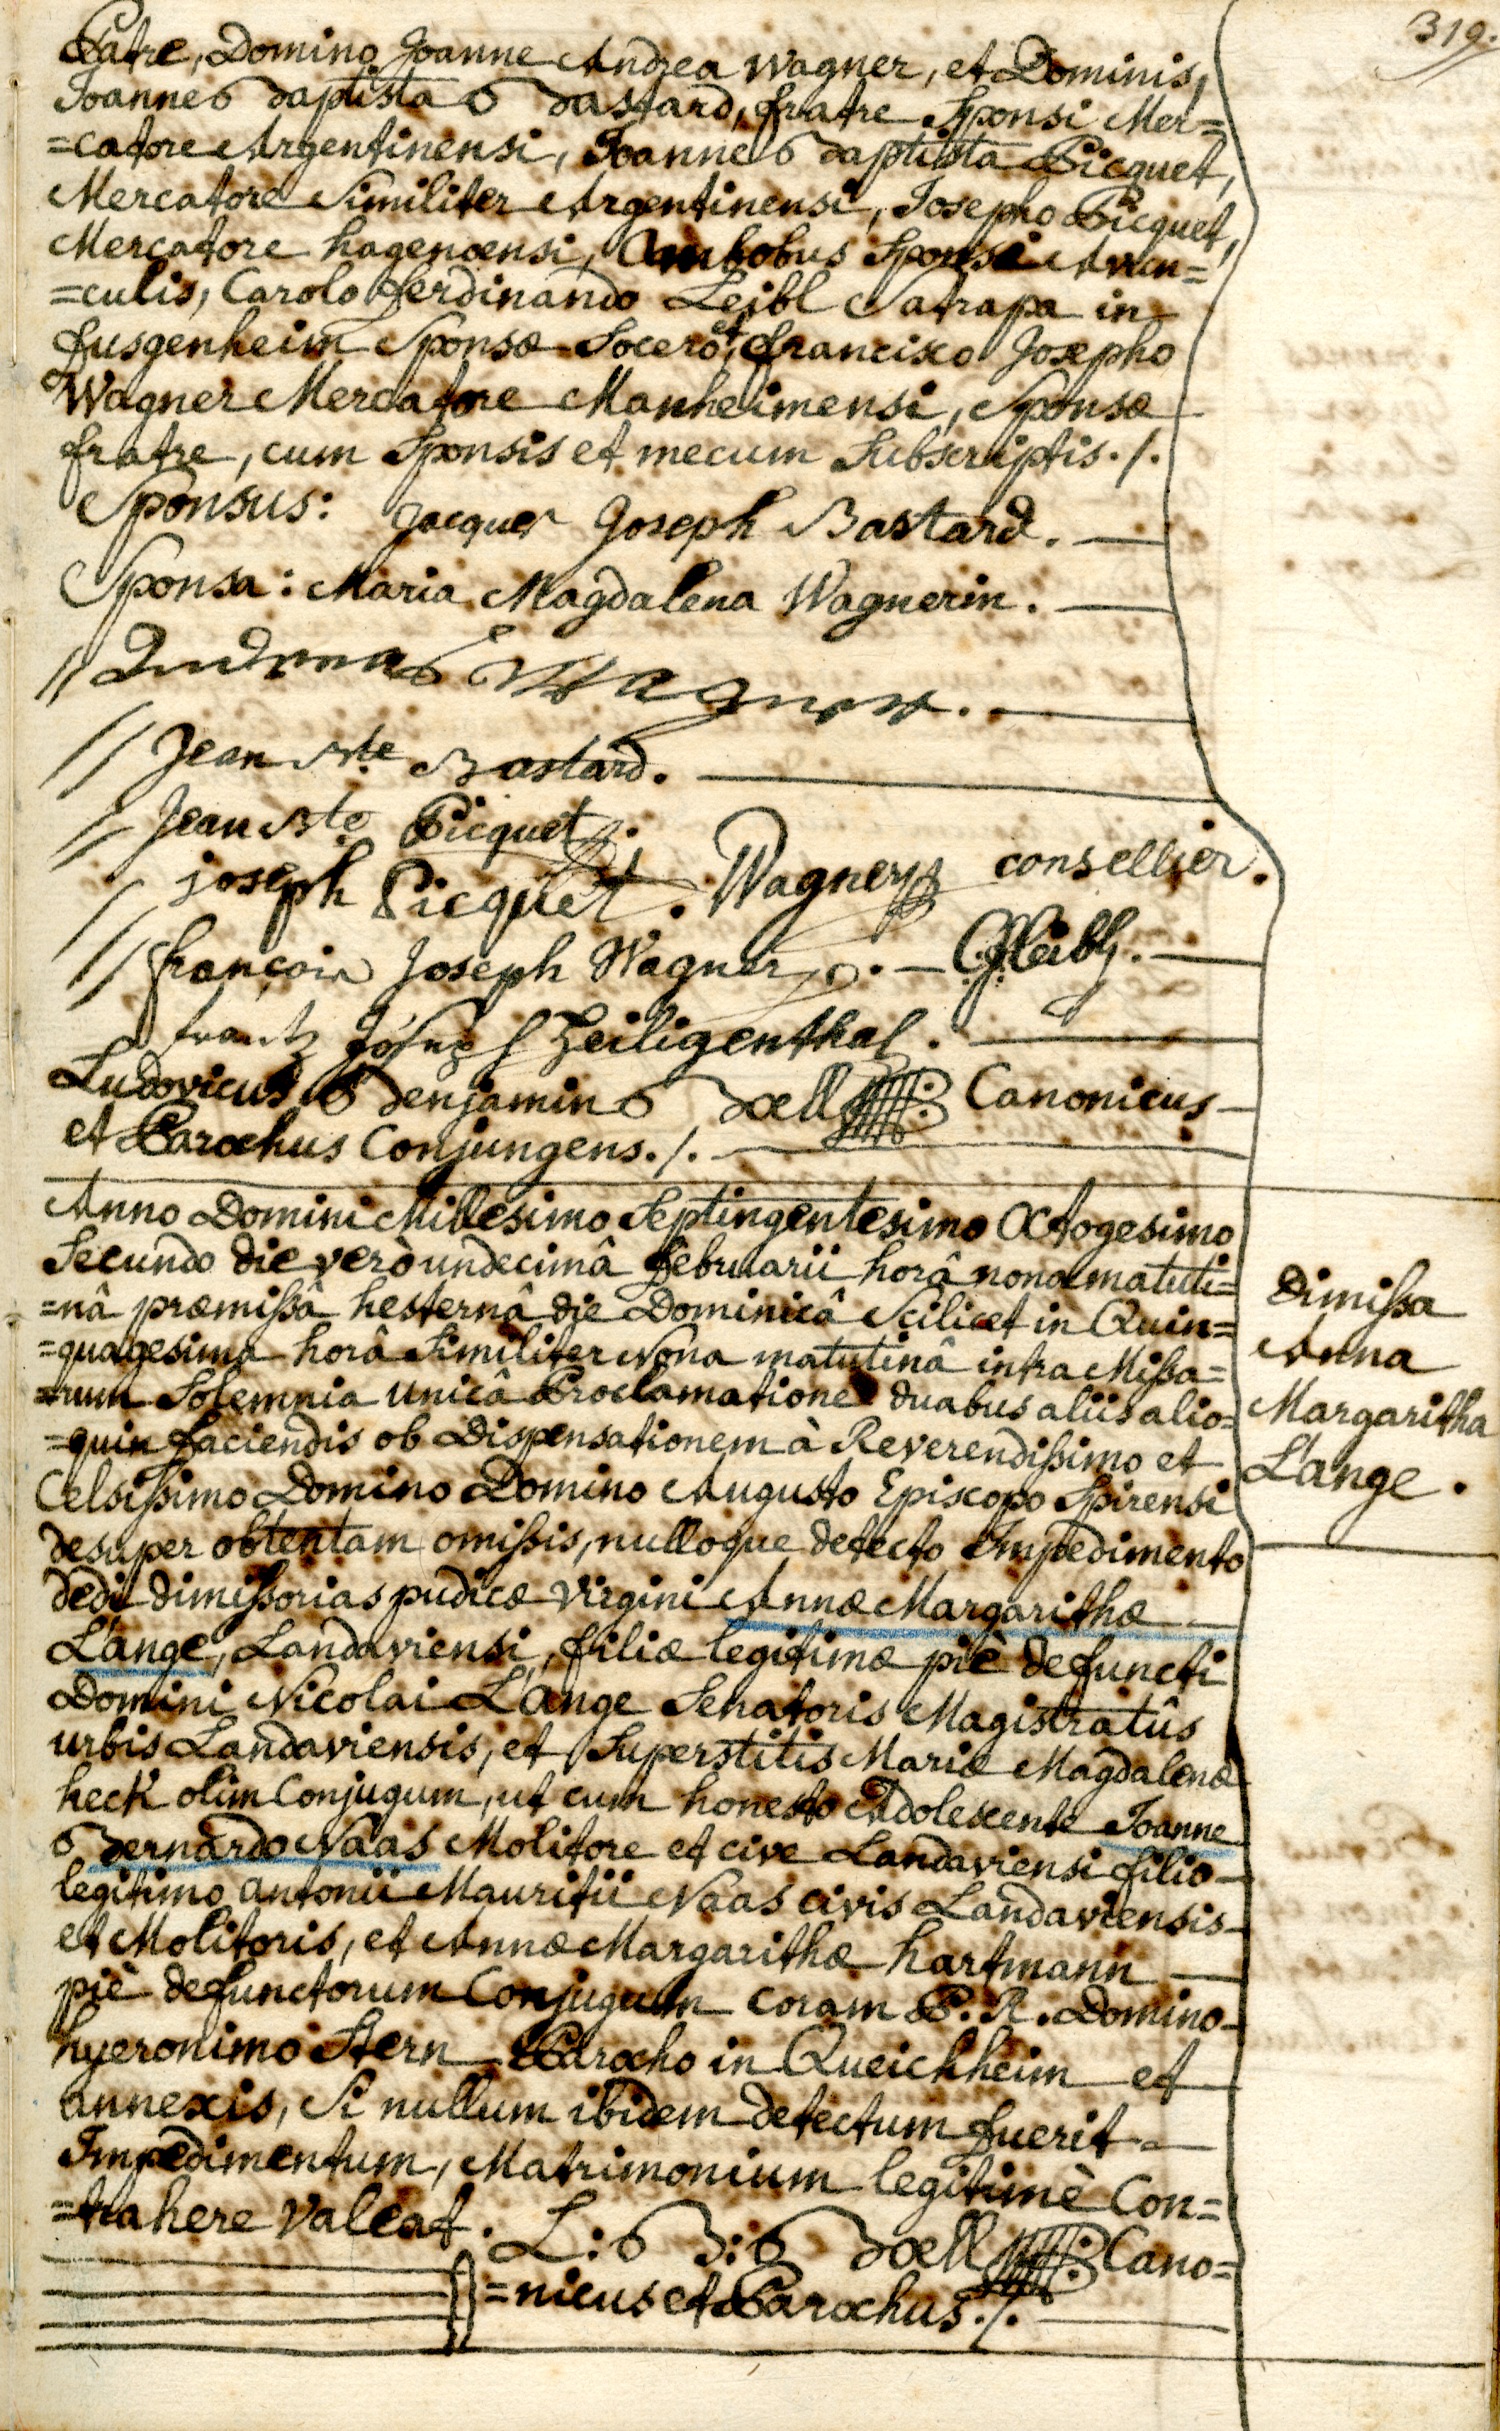 319.
Patre, Domino Joanne Andrea Wagner, et Dominis,
Joanne Baptista Bastard, fratre Sponsi Mer=
=catore Argentinensi, Joanne Baptista Picquet,
Mercatore Similiter Argentinensi, Josepho Picquet,
Mercatore hagenoensi, Ambobus Sponsi Avun=
=culis, Carolo ferdinando Leibl Satrapa in
fusgenheim Sponsæ Socero, et francisco Josepho
Wagner Mercatore Manheimensi, Sponsæ
fratre, cum Sponsis et mecum Subscriptis./.
Sponsus: Jacques Joseph Bastard.
Sponsa: Maria Magdalena Wagnerin.
// Andreas Wagner.
// Jean Bte Bastard.
// Jean Bte Picquet.
// joseph Picquet. Wagner consellier.
// françois Joseph Wagner. — Leibl.
frantz Joseph Heiligenthal.
Ludovicus Benjamin Boell Canonicus
et Parochus Conjungens./.
Anno Domini Millesimo Septingentesimo Octogesimo
Secundo die verò undecimâ februarii horâ nona matuti=
=nâ præmissâ hesternâ die Dominicâ Scilicet in Quin=
=quagesima horâ Similiter Nona matutinâ intra Missa=
=rum Solemnia unicâ Proclamatione duabus aliis alio=
=quin faciendis ob Dispensationem à Reverendissimo et
Celsissimo Domino Domino Augusto Episcopo Spirensi
desuper obtentam omissis, nulloque detecto Impedimento
dedi dimissorias pudicæ virgini Annæ Margarithæ
L'ange, Landaviensi, filiæ legitimæ piè defuncti
Domini Nicolai L'ange Senatoris Magistratûs
urbis Landaviensis, et Superstitis Mariæ Magdalenæ
heck olim Conjugum, ut cum honesto Adolescente Joanne
Bernardo Naas Molitore et cive Landaviensi filio
legitimo antonii Mauritii Naas civis Landaviensis
et Molitoris, et Annæ Margarithæ hartmann
piè defunctorum Conjugum coram P. R. Domino
hyeronimo Stern Parocho in Queichheim et
annexis, Si nullum ibidem detectum fuerit
Impedimentum, Matrimonium legitimè Con=
=trahere valeat. L: B: Boell Cano=
=nicus et Parochus./.
Dimissa
Anna
Margaritha
L'ange.